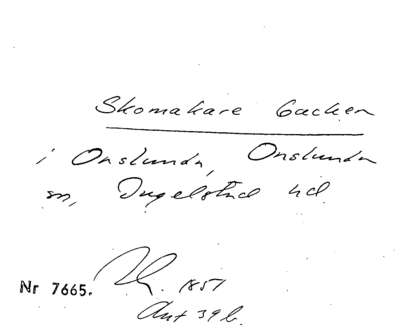 Skomakare Backen
i Onslunda, Onslunda
sn, Ingelstad hd
Nr 7665. 1851
Ant 39 b.